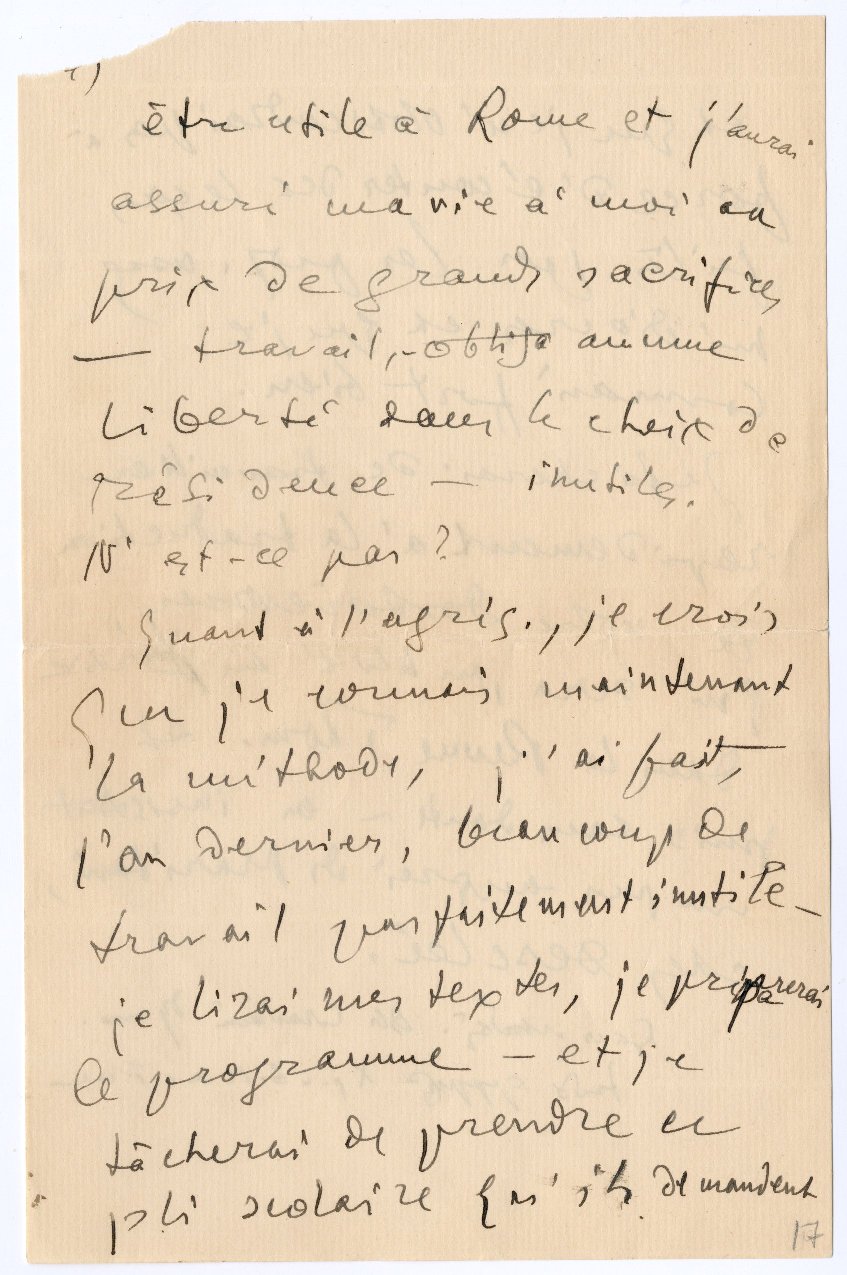 être utile à Rome et j'aurai
assuré ma vie à moi au
prix de grands sacrifices
— travail, - obligé aucune
liberté dans le choix de
résidence — inutiles.
N'est-ce pas ?
Quant à l'agrég., je crois
que je connais maintenant
la méthode, j'ai fait,
l'an dernier, beaucoup de
travail parfaitement inutile —
je lirai mes textes, je préparerai
le programme — et je
tâcherai de prendre ce
pli scolaire qu'ils demandent
17